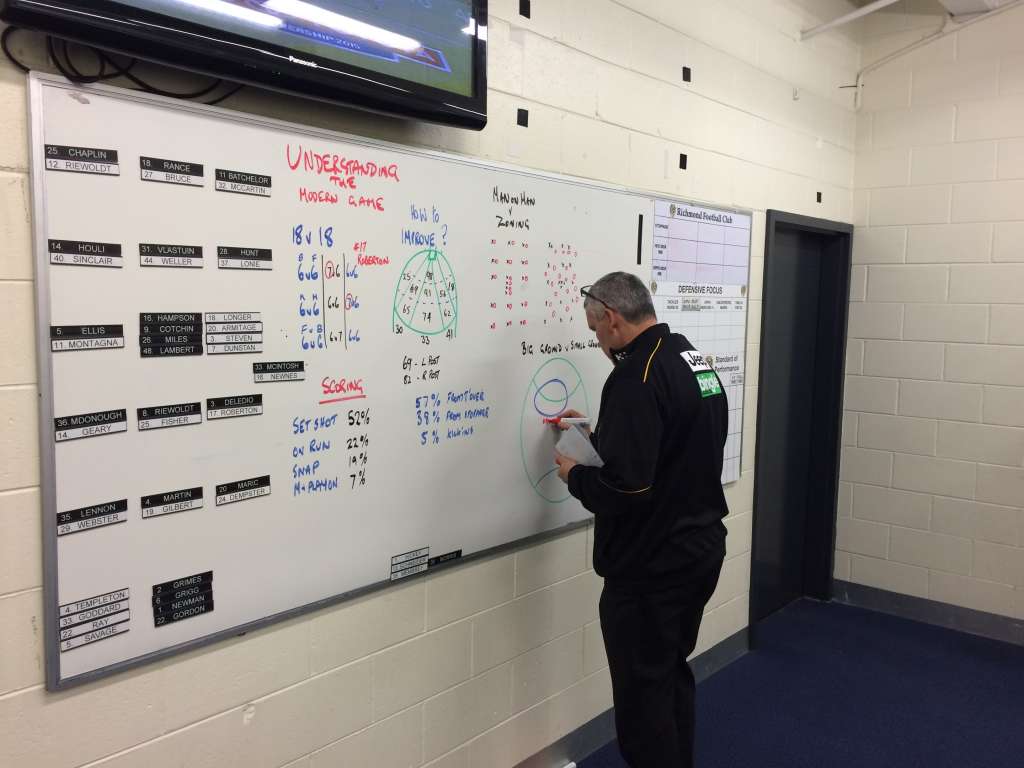 Panasonic
ERSHIP 2015
25. CHAPLIN
12. RIEWOLDT
18. RANCE
27. BRUCE
11 BATCHELOR
32. MCCARTIN
14. HOULI
40. SINCLAIR
31. VLASTUIN
44. WELLER
28. HUNT
37. LONIE
5. ELLIS
11. MONTAGNA
16. HAMPSON
9. COTCHIN
26. MILES
48. LAMBERT
18. LONGER
20. ARMITAGE
3. STEVEN
7. DUNSTAN
33. MCINTOSH
16. NEWNES
36. MDONOUGH
14. GEARY
8. RIEWOLDT
25. FISHER
3. DELEDIO
17. ROBERTON
35. LENNON
29. WEBSTER
4. MARTIN
19. GILBERT
20. MARIC
24. DEMPSTER
4. TEMPLETON
33. GODDARD
22. RAY
5. SAVAGE
2. GRIMES
6. GRIGG
1. NEWMAN
22. GORDON
UNDERSTANDING
THE
MODERN GAME
18 v 18
B F
6v6 7v6 6v6
#17
ROBERTON
M M
6v6 6v6 7v6
F v B
6v6 6v7 6v6
SCORING
SET SHOT 52%
ON RUN 22%
SNAP 19%
M+PLAYON 7%
HOW TO
IMPROVE?
25 98 18
69 91 56
65 74 62
30 33 41
69 - L POST
82 - R POST
57% FRONT/OVER
38% FROM STOPPAGE
5% KICKING
MAN ON MAN
v
ZONING
BIG GROUND v SMALL
Richmond Football Club
DEFENSIVE FOCUS
Standard of
Performance
Jeep
bingle